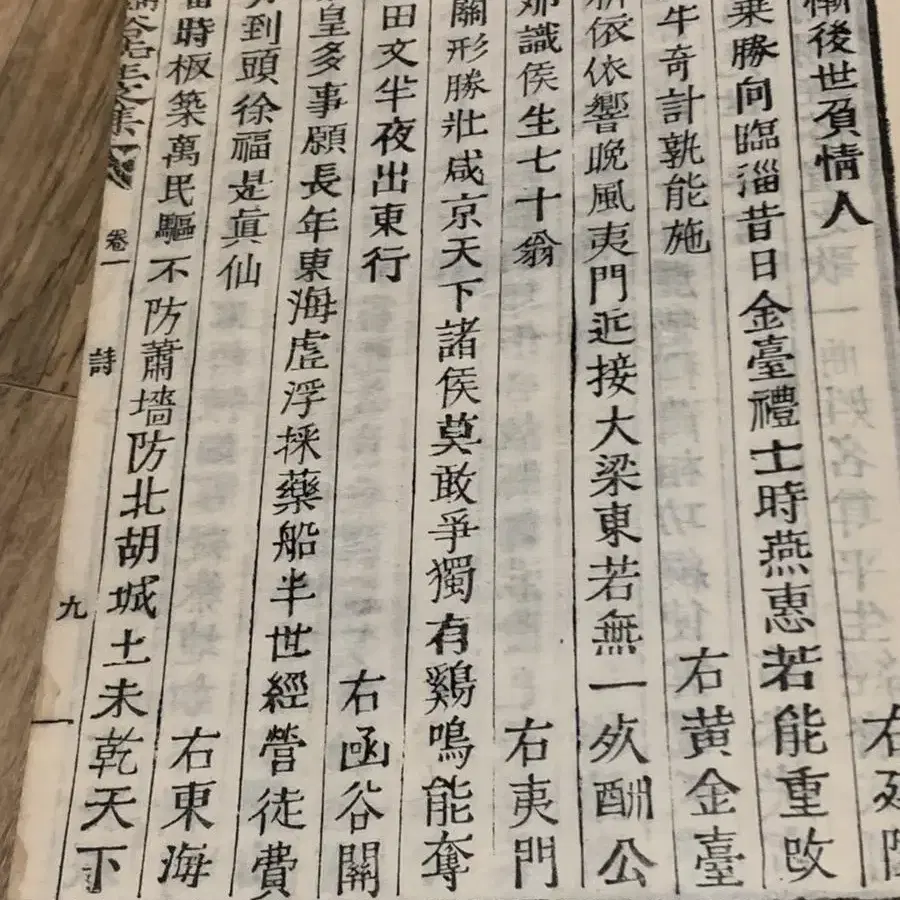 後世負情人 右
乘勝向臨淄昔日金臺禮士時燕惠若能重改
牛奇計孰能施 右黃金臺
依依響晚風夷門近接大梁東若無一死酬公
識侯生七十翁 右夷門
關形勝壯咸京天下諸侯莫敢爭獨有鷄鳴能奪
田文半夜出東行 右函谷關
皇多事願長年東海虛浮採藥船半世經營徒費
到頭徐福是眞仙 右東海
當時板築萬民驅不防蕭墻防北胡城土未乾天下
谷先生文集 卷一 詩 九